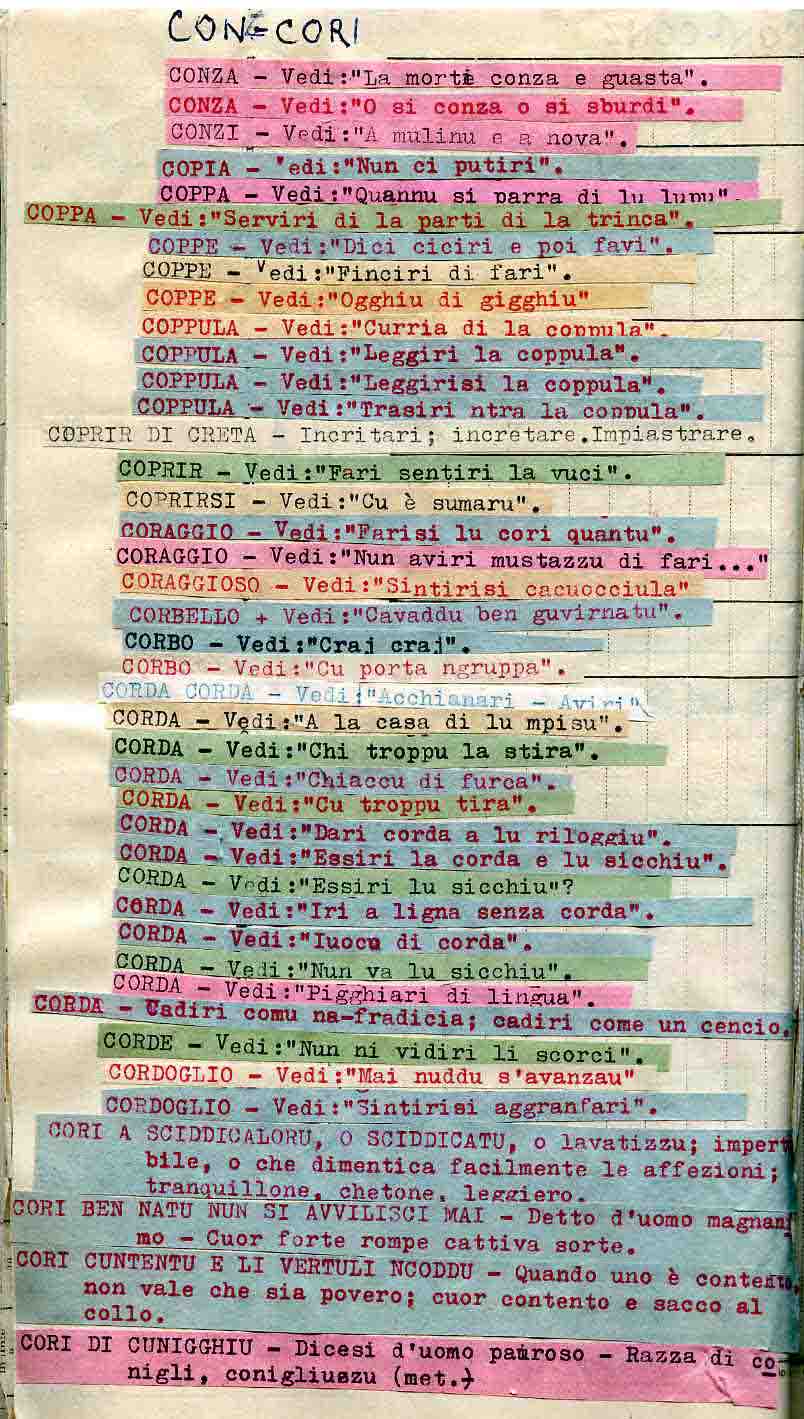 CON-CORI
CONZA - Vedi:"La morte conza e guasta".
CONZA - Vedi:"O si conza o si sburdi".
CONZI - Vedi:"A mulinu e a nova".
COPIA - Vedi:"Nun ci putiri".
COPPA - Vedi:"Quannu si parra di lu lupu"
COPPA - Vedi:"Serviri di la parti di la trinca".
COPPE - Vedi:"Dici ciciri e poi favi".
COPPE - Vedi:"Finciri di fari".
COPPE - Vedi:"Ogghiu di gigghiu"
COPPULA - Vedi:"Curria di la coppula".
COPPULA - Vedi:"Leggiri la coppula".
COPPULA - Vedi:"Leggirisi la coppula".
COPPULA - Vedi:"Trasiri ntra la coppula".
COPRIR DI CRETA - Incritari; incretare.Impiastrare.
COPRIR - Vedi:"Fari sentiri la vuci".
COPRIRSI - Vedi:"Cu è sumaru".
CORAGGIO - Vedi:"Farisi lu cori quantu".
CORAGGIO - Vedi:"Nun aviri mustazzu di fari..."
CORAGGIOSO - Vedi:"Sintirisi cacuocciula"
CORBELLO + Vedi:"Cavaddu ben guvirnatu".
CORBO - Vedi:"Craj craj".
CORBO - Vedi:"Cu porta ngruppa".
CORDA CORDA - Vedi:"Acchianari - Aviri"
CORDA - Vedi:"A la casa di lu mpisu".
CORDA - Vedi:"Chi troppu la stira".
CORDA - Vedi:"Chiaccu di furca".
CORDA - Vedi:"Cu troppu tira".
CORDA - Vedi:"Dari corda a lu riloggiu".
CORDA - Vedi:"Essiri la corda e lu sicchiu".
CORDA - Vedi:"Essiri lu sicchiu"?
CORDA - Vedi:"Iri a ligna senza corda".
CORDA - Vedi:"Iuocu di corda".
CORDA - Vedi:"Nun va lu sicchiu".
CORDA - Vedi:"Pigghiari di lingua".
CORDA - Cadiri comu na-fradicia; cadiri come un cencio.
CORDE - Vedi:"Nun ni vidiri li scorci".
CORDOGLIO - Vedi:"Mai nuddu s'avanzau"
CORDOGLIO - Vedi:"Sintirisi aggranfari".
CORI A SCIDDICALORU, O SCIDDICATU, o lavatizzu; impert
bile, o che dimentica facilmente le affezioni;
tranquillone, chetone, leggiero.
CORI BEN NATU NUN SI AVVILISCI MAI - Detto d'uomo magnani
mo - Cuor forte rompe cattiva sorte.
CORI CUNTENTU E LI VERTULI NCODDU - Quando uno è contento,
non vale che sia povero; cuor contento e sacco al
collo.
CORI DI CUNIGGHIU - Dicesi d'uomo pauroso - Razza di co-
nigli, conigliuszu (met.)